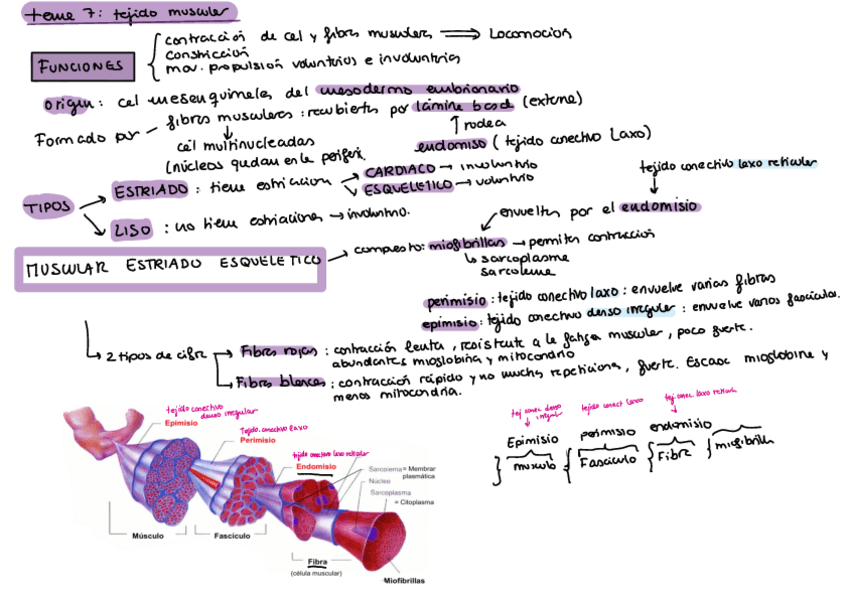 tema 7: tejido muscular
FUNCIONES
contracción de cel y fibras musculares ⟹ Locomoción
constricción
mov. propulsión voluntarios e involuntarios
origen: cel mesenquimales del mesodermo embrionario
Formado por — fibras musculares: recubiertas por lámina basal (externa)
rodea
cél multinucleadas
endomiso (tejido conectivo laxo)
(núcleos quedan en la periferi.
TIPOS
ESTRIADO: tiene estriacion
CARDIACO → involuntario
ESQUELETICO → voluntario
LISO: no tiene estriaciones → involuntario.
tejido conectivo laxo reticular
envueltas por el endomisio
MUSCULAR ESTRIADO ESQUELETICO
compuesto: miofibrillas → permiten contracción
sarcoplasma
sarcolema
perimisio: tejido conectivo laxo: envuelve varias fibras
epimisio: tejido conectivo denso irregular: envuelve varios fascículos.
2 tipos de cifra
Fibras rojas: contracción lenta, resistente a la fatiga muscular, poco fuerte.
abundantes mioglobina y mitocondria
Fibras blancas: contracción rápida y no muchas repeticiones, fuerte. Escasa mioglobina y
menos mitocondria.
tejido conectivo
denso irregular
Epimisio
Tejido. conectivo laxo
Perimisio
tejido conectivo laxo reticular
Endomisio
Sarcolema = Membrana
plasmática
Núcleo
Sarcoplasma
= Citoplasma
Músculo
Fascículo
Fibra
(célula muscular)
Miofibrillas
tej conec denso
irregular
tejido conect laxo
tej conec. laxo reticula
Epimisio
perimisio
endomisio
musculo
Fascículo
Fibra
miofibrilla